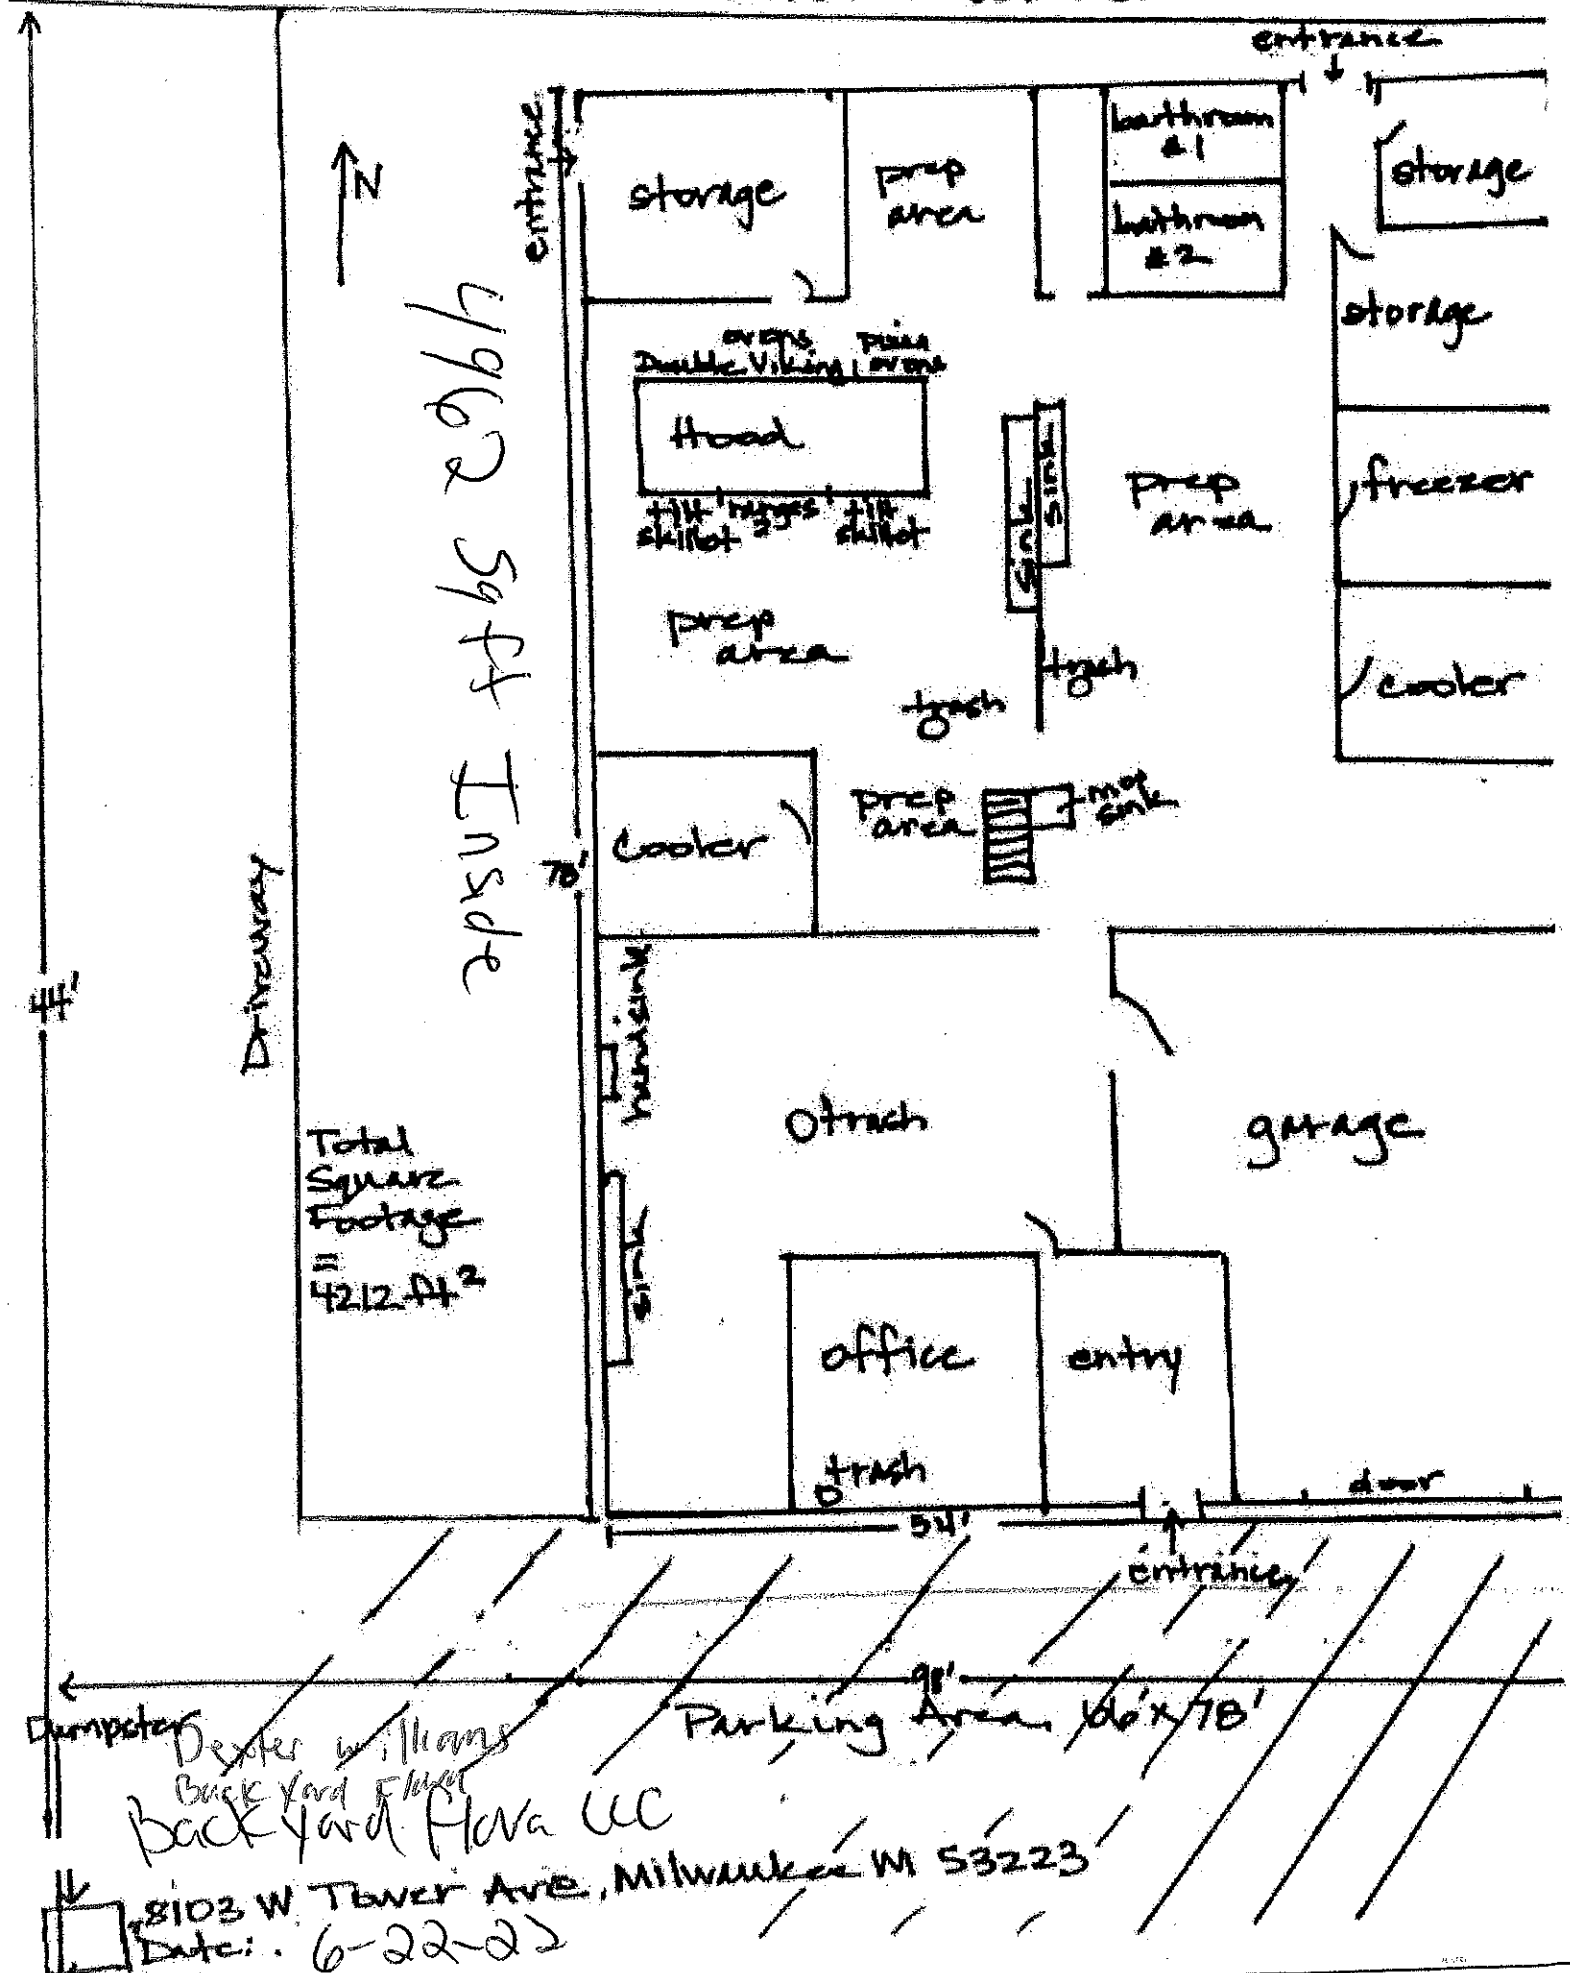 entrance
entrance
N
storage
prep
area
bathroom
#1
bathroom
#2
storage
storage
ovens
Double Viking
pizza
ovens
Hood
tilt
skillet
ranges
2
tilt
skillet
sink
sink
prep
area
freezer
prep
area
trash
trash
cooler
4962 Sqft Inside
cooler
prep
area
mop
sink
78'
44'
Driveway
handsink
trash
garage
Total
Square
Footage
=
4212 ft²
sink
office
entry
trash
door
54'
entrance
98'
Dumpster
Parking Area 66' x 78'
Dexter Williams
Back Yard
Back Yard Flava LLC
8103 W Tower Ave, Milwaukee WI 53223
Date: 6-22-22